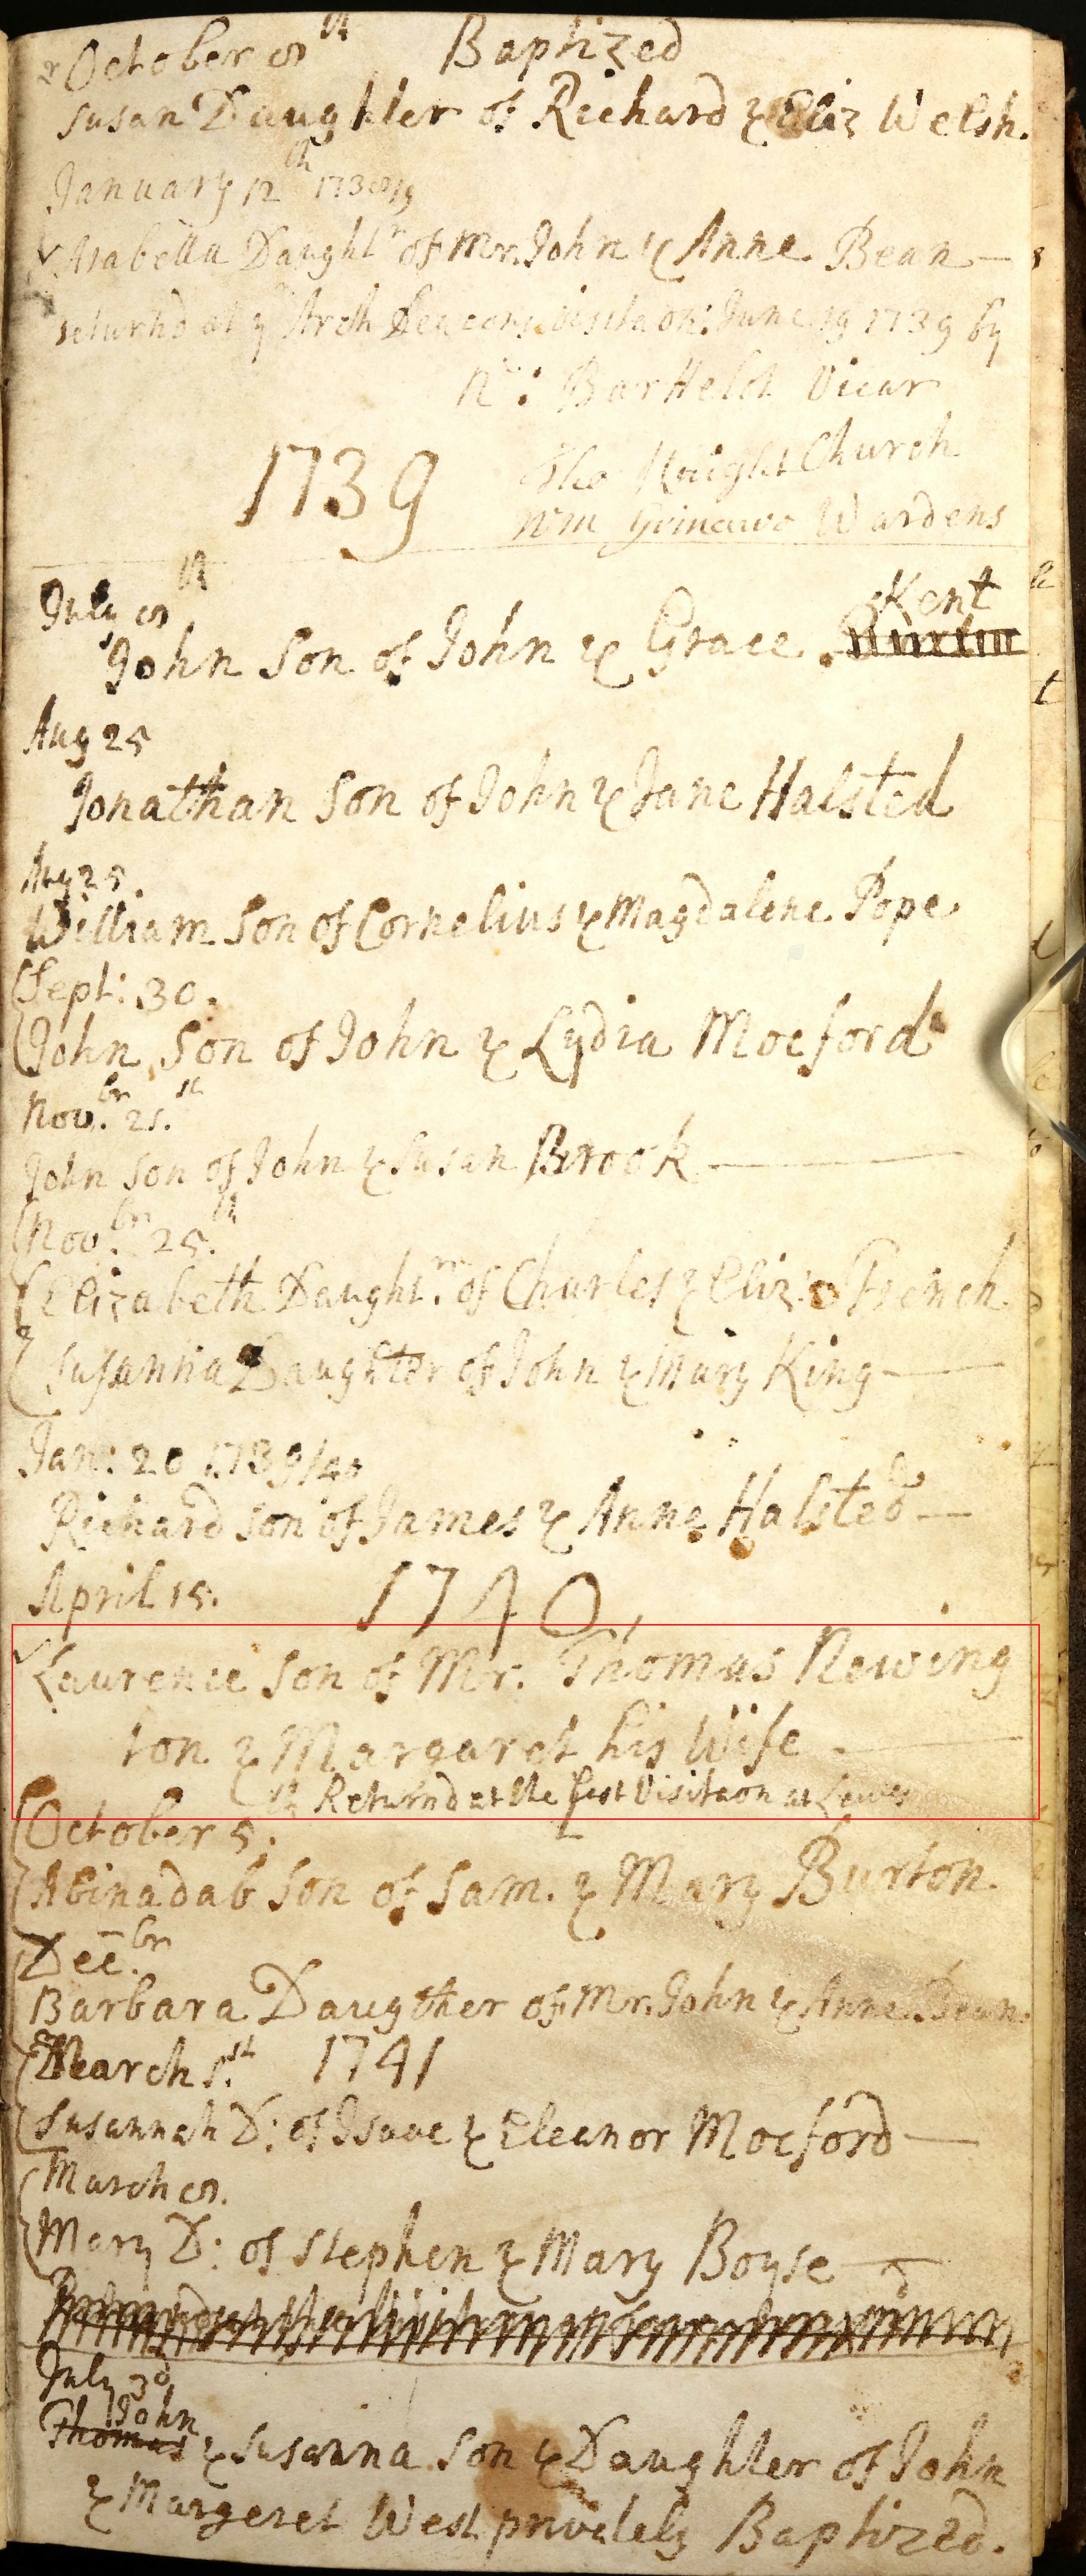 October 8th Baptized
Susan Daughter of Richard & Eliz Welsh.
January 12th 1738/9
Arabella Daughtr of Mr. John & Anne Bean
returnd at ye Arch Deacons Visitaon: June 19 1739 by
Nr: Barttelot Vicar
1739 Tho Knight Church
Wm Wardens
July 8th
John Son of John & Grace Kent
Aug 25
Jonathan Son of John & Jane Halsted
Aug 25.
William Son of Cornelius & Magdalene Pope
Sept: 30.
John Son of John & Lydia Mocford
Nov.br 21.st
John Son of John & Susan Brook
Nov.br 25.th
Elizabeth Daughtr. of Charles & Eliz: French
Susanna Daughter of John & Mary King
Jan: 20 1739/40
Richard Son of James & Anne Halsted
April 15. 1740,
Laurence Son of Mr. Thomas Newing
ton & Margaret his Wife
Returnd at the first Visitaon at Lewes
October 5.
Abinadab Son of Sam. & Mary Burton.
Dec.br
Barbara Daugther of Mr. John & Anne Bean.
March 1.st 1741
Susannah D: of Isaac & Eleanor Mocford
March 8.
Mary D: of Stephen & Mary Boyse
July 3d
John
Thomas & Susanna Son & Daughter of John
& Margeret West privately Baptized.